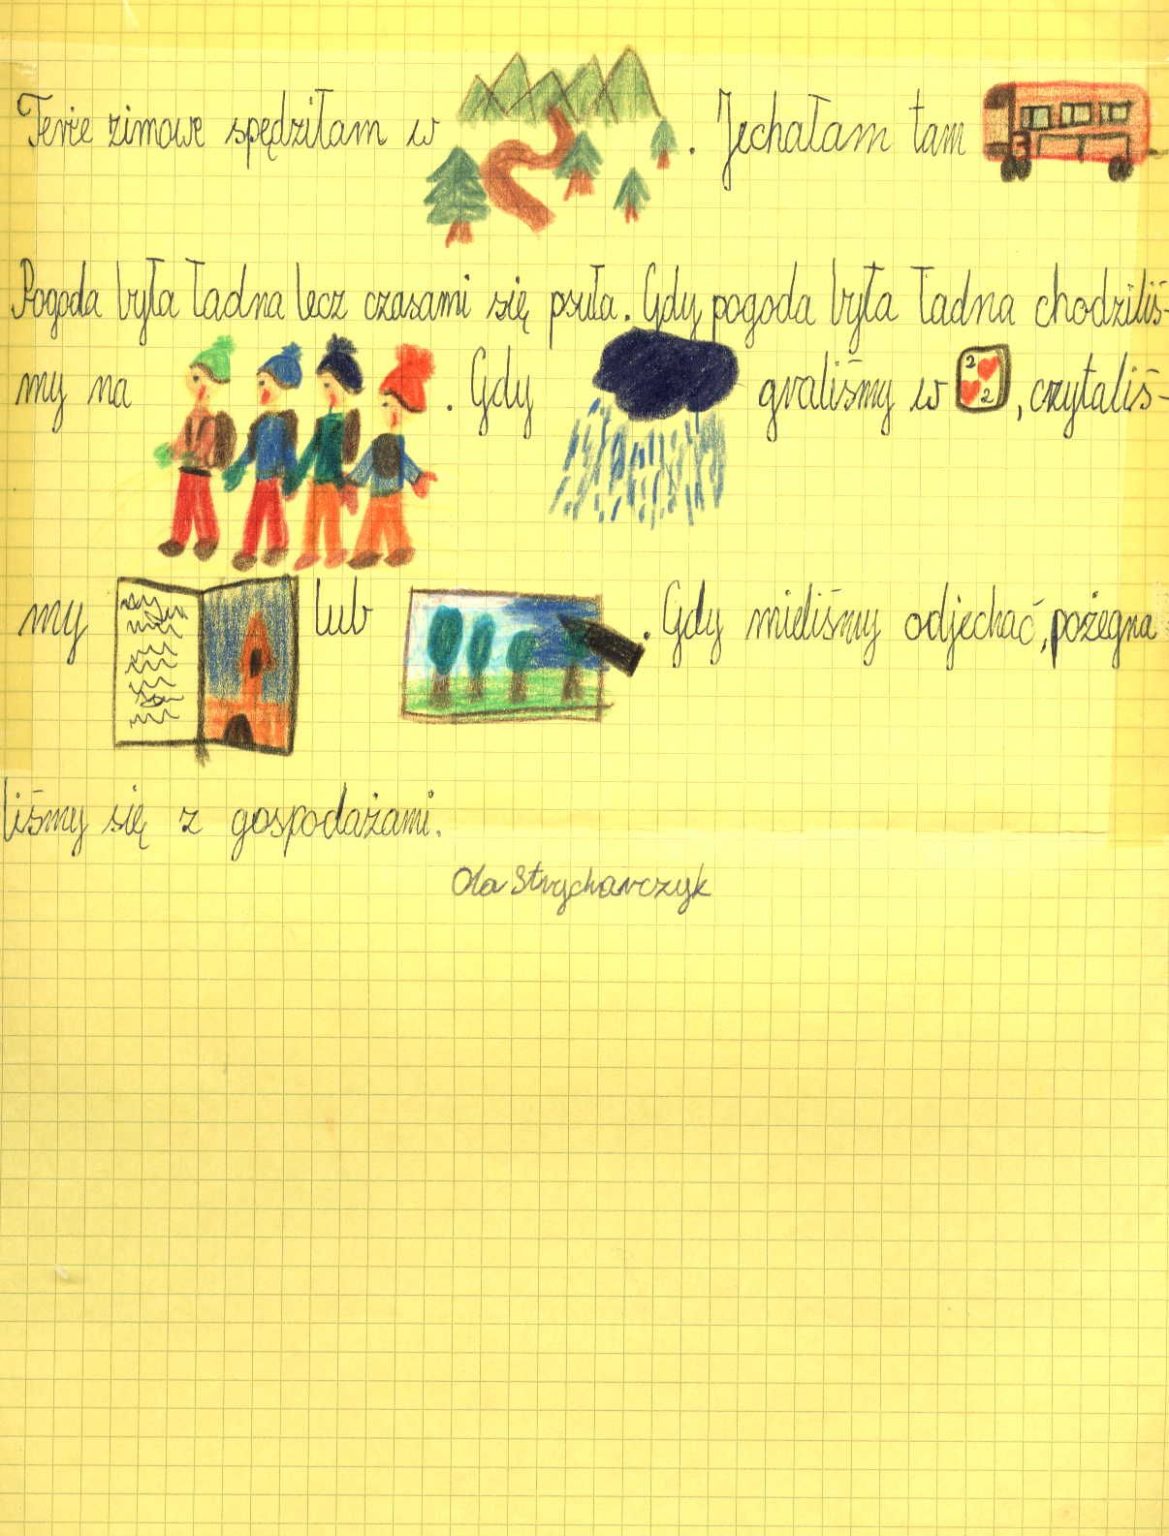 Ferie zimowe spędziłam w . Jechałam tam
Pogoda była ładna lecz czasami się psuła. Gdy pogoda była ładna chodziliś-
my na . Gdy graliśmy w 2 2, czytaliś-
my lub . Gdy mieliśmy odjechać, pożegna
liśmy się z gospodażami.
Ola Strycharczyk